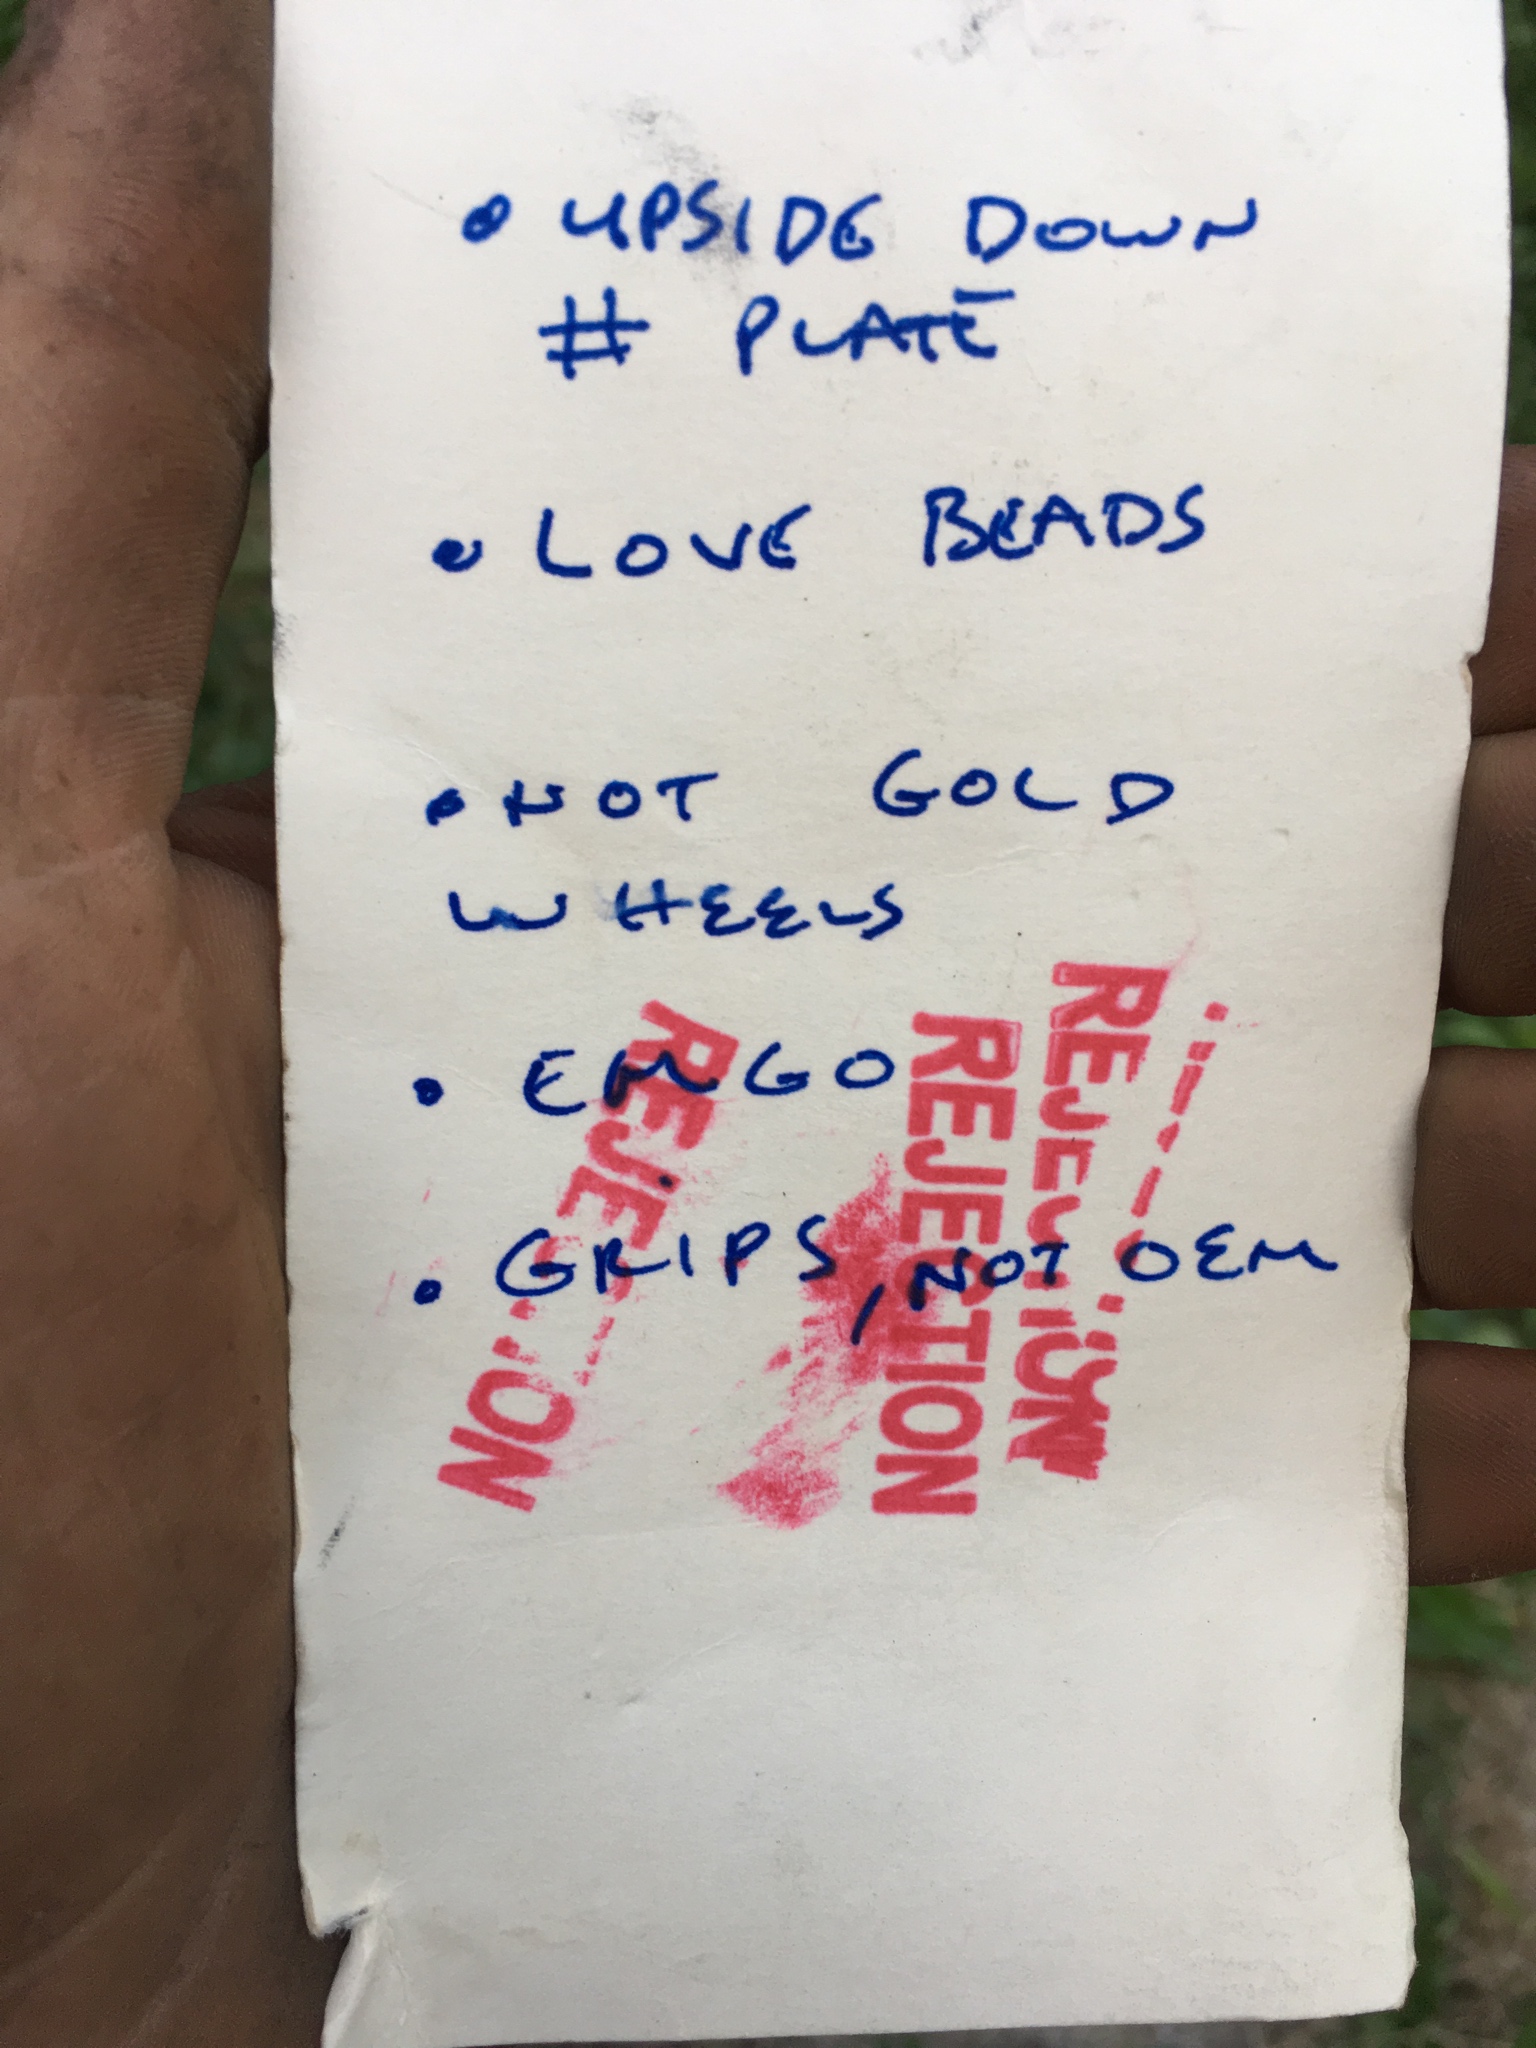 • UPSIDE DOWN
# PLATE
• LOVE BEADS
• NOT GOLD
WHEELS
• EMGO
• GRIPS, NOT OEM
REJECTION
REJECTION